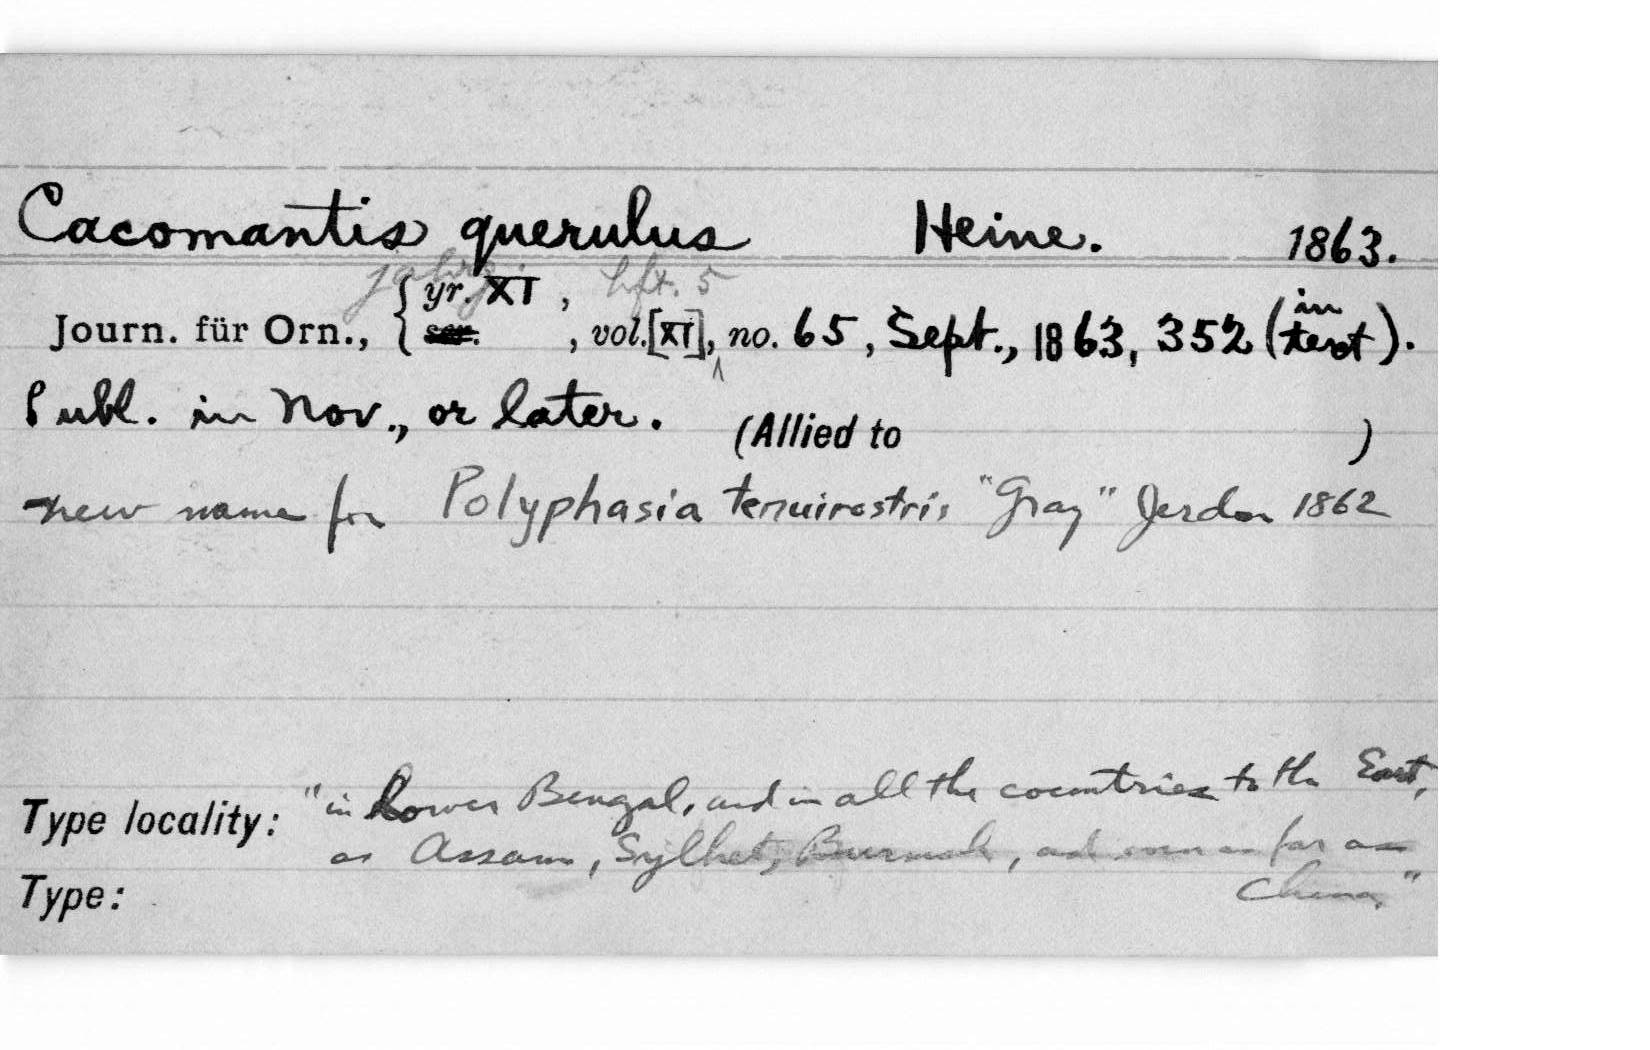 Cacomantis querulus Heine. 1863.
jahrg. hft. 5
yr. XI ,
Journ. für Orn., { ser. , vol. [XI], no. 65, Sept., 1863, 352 (in text).
Publ. in Nov., or later. (Allied to )
new name for Polyphasia tenuirostris "Gray" Jerdon 1862
Type locality: "in Lower Bengal, and in all the countries to the East,
as Assam, Sylhet, Burmah, and even as far as
China."
Type: